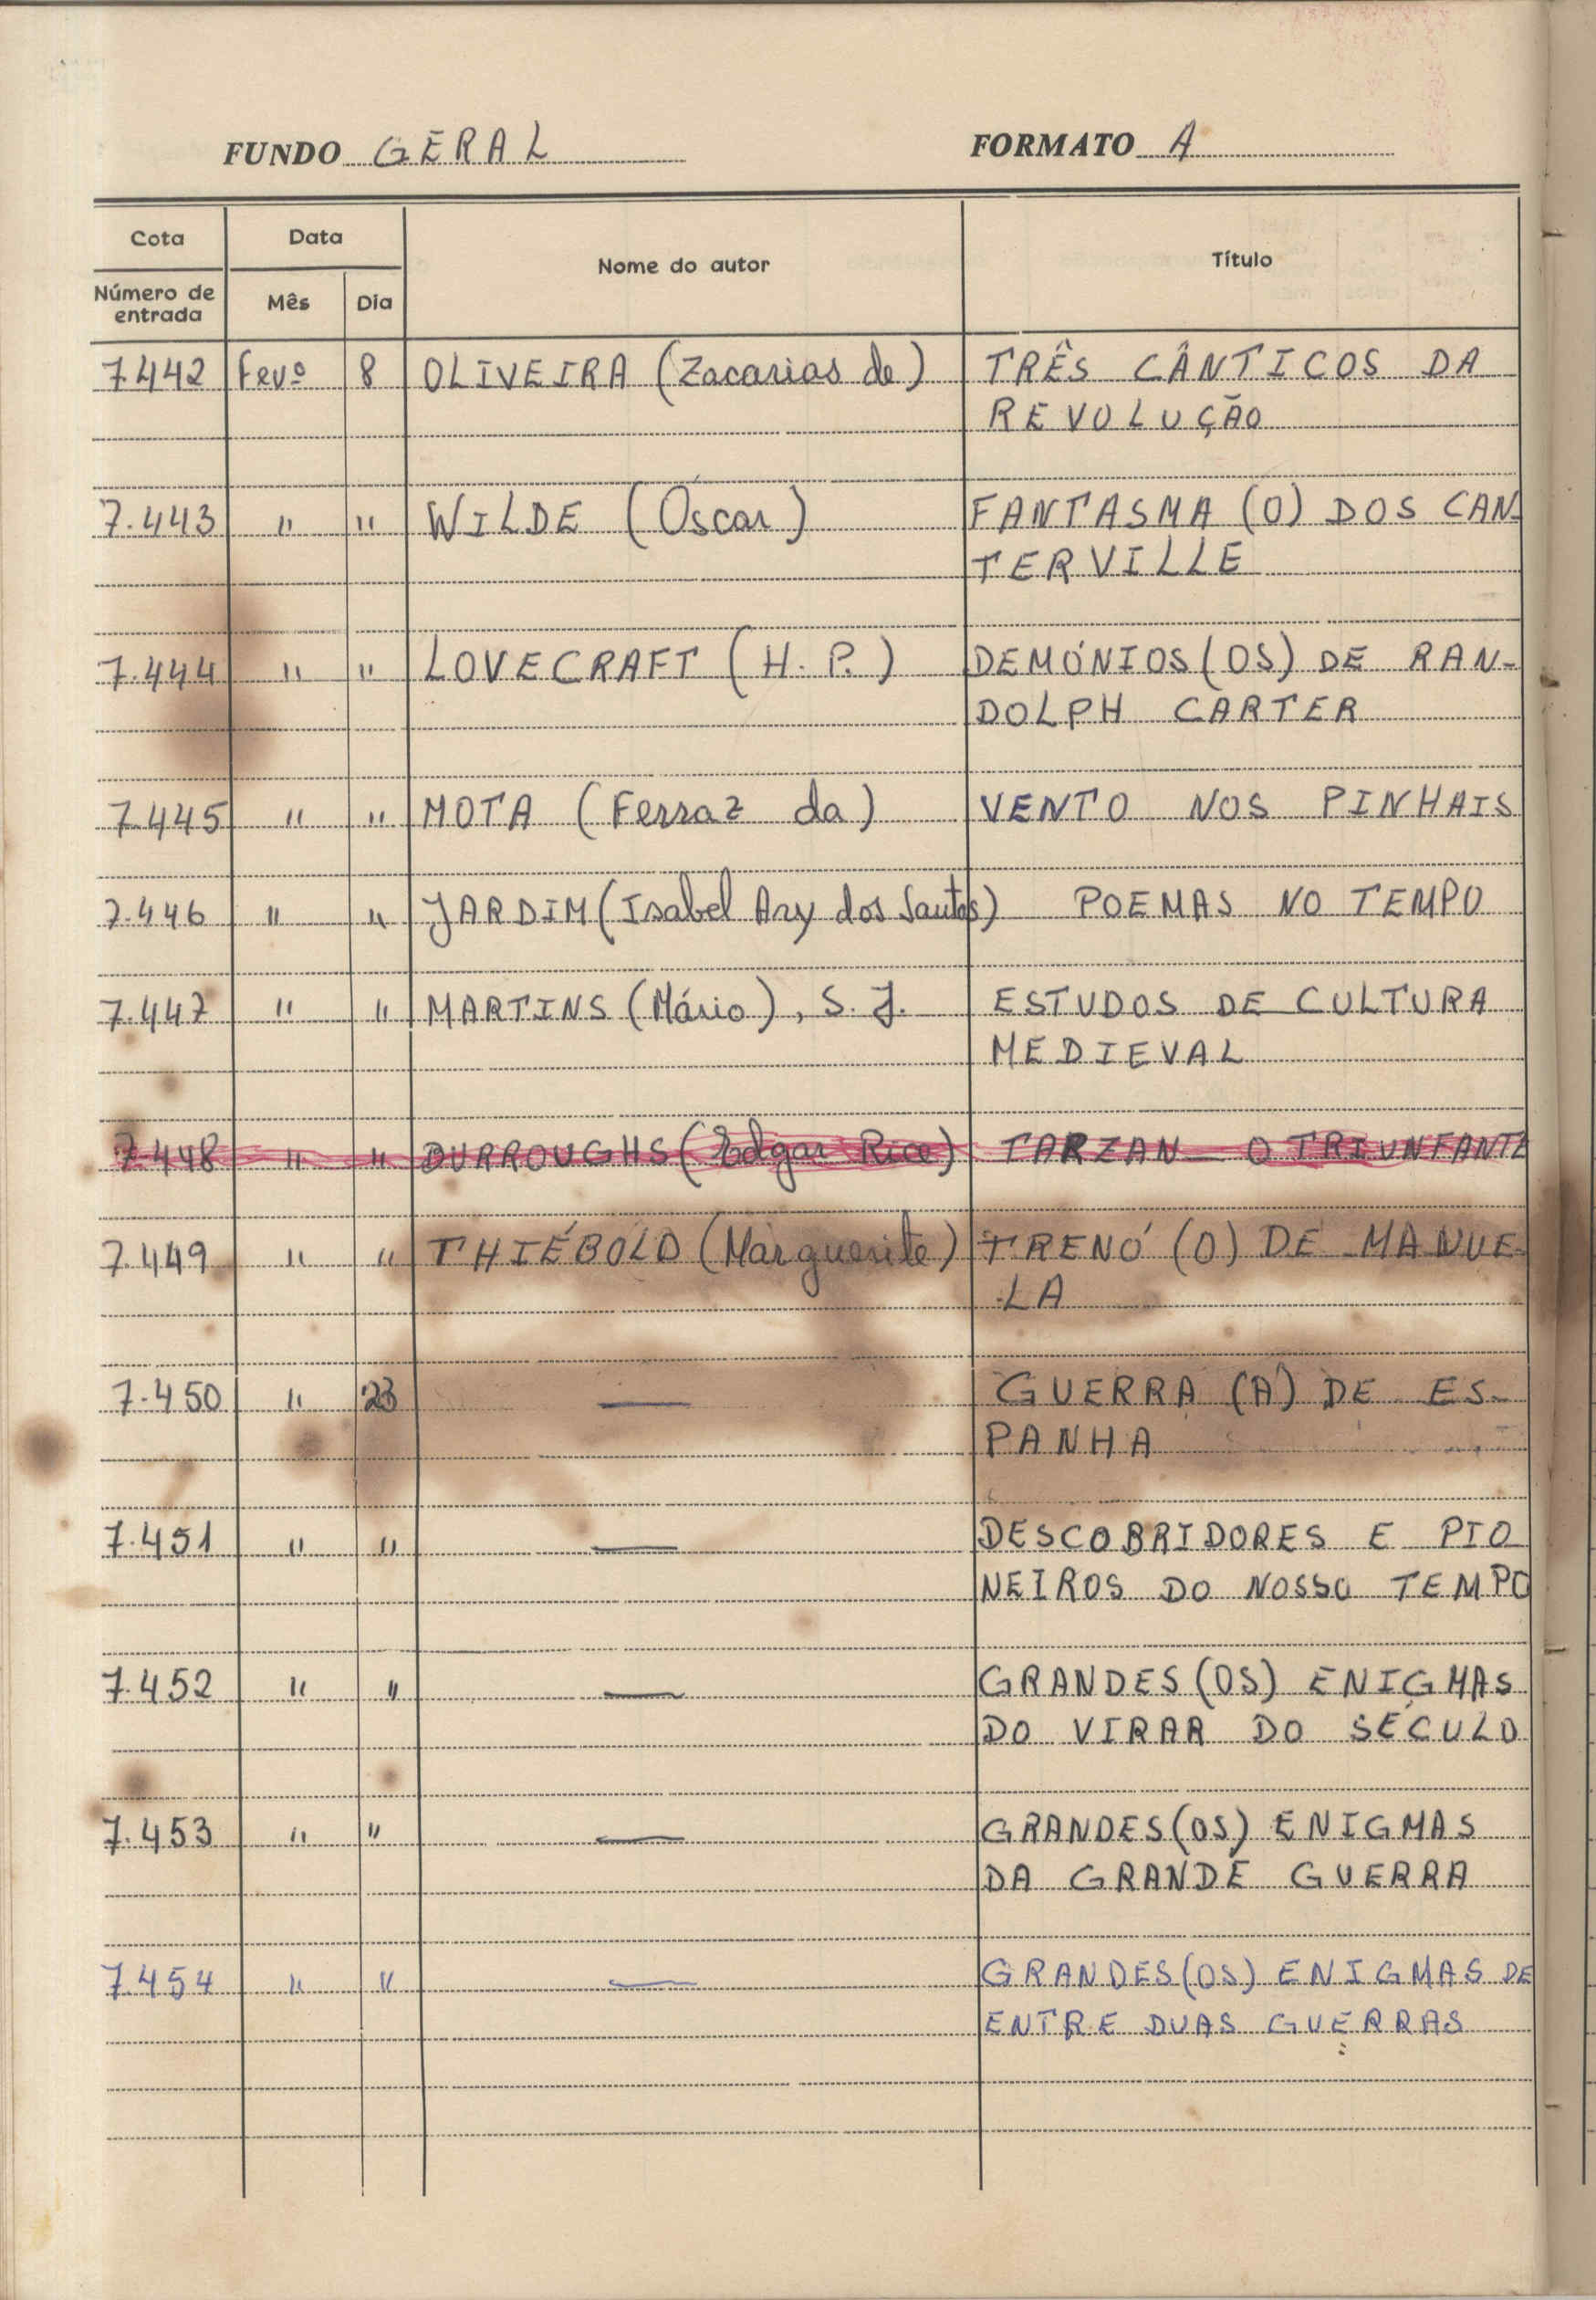 FUNDO GERAL FORMATO A
Cota Data Nome do autor Título
Número de entrada Mês Dia
7.442 Fevº 8 OLIVEIRA (Zacarias de) TRÊS CÂNTICOS DA
REVOLUÇÃO
7.443 " " WILDE (Óscar) FANTASMA (O) DOS CAN-
TERVILLE
7.444 " " LOVECRAFT (H. P.) DEMÓNIOS (OS) DE RAN-
DOLPH CARTER
7.445 " " MOTA (Ferraz da) VENTO NOS PINHAIS
7.446 " " JARDIM (Isabel Ary dos Santos) POEMAS NO TEMPO
7.447 " " MARTINS (Mário), S. J. ESTUDOS DE CULTURA
MEDIEVAL
7.448 " " BURROUGHS (Edgar Rice) TARZAN - O TRIUNFANTE
7.449 " " THIÉBOLD (Marguerite) TRENÓ (O) DE MANUE-
LA
7.450 " 23 — GUERRA (A) DE ES-
PANHA
7.451 " " — DESCOBRIDORES E PIO
NEIROS DO NOSSO TEMPO
7.452 " " — GRANDES (OS) ENIGMAS
DO VIRAR DO SÉCULO
7.453 " " — GRANDES (OS) ENIGMAS
DA GRANDE GUERRA
7.454 " " — GRANDES (OS) ENIGMAS DE
ENTRE DUAS GUERRAS